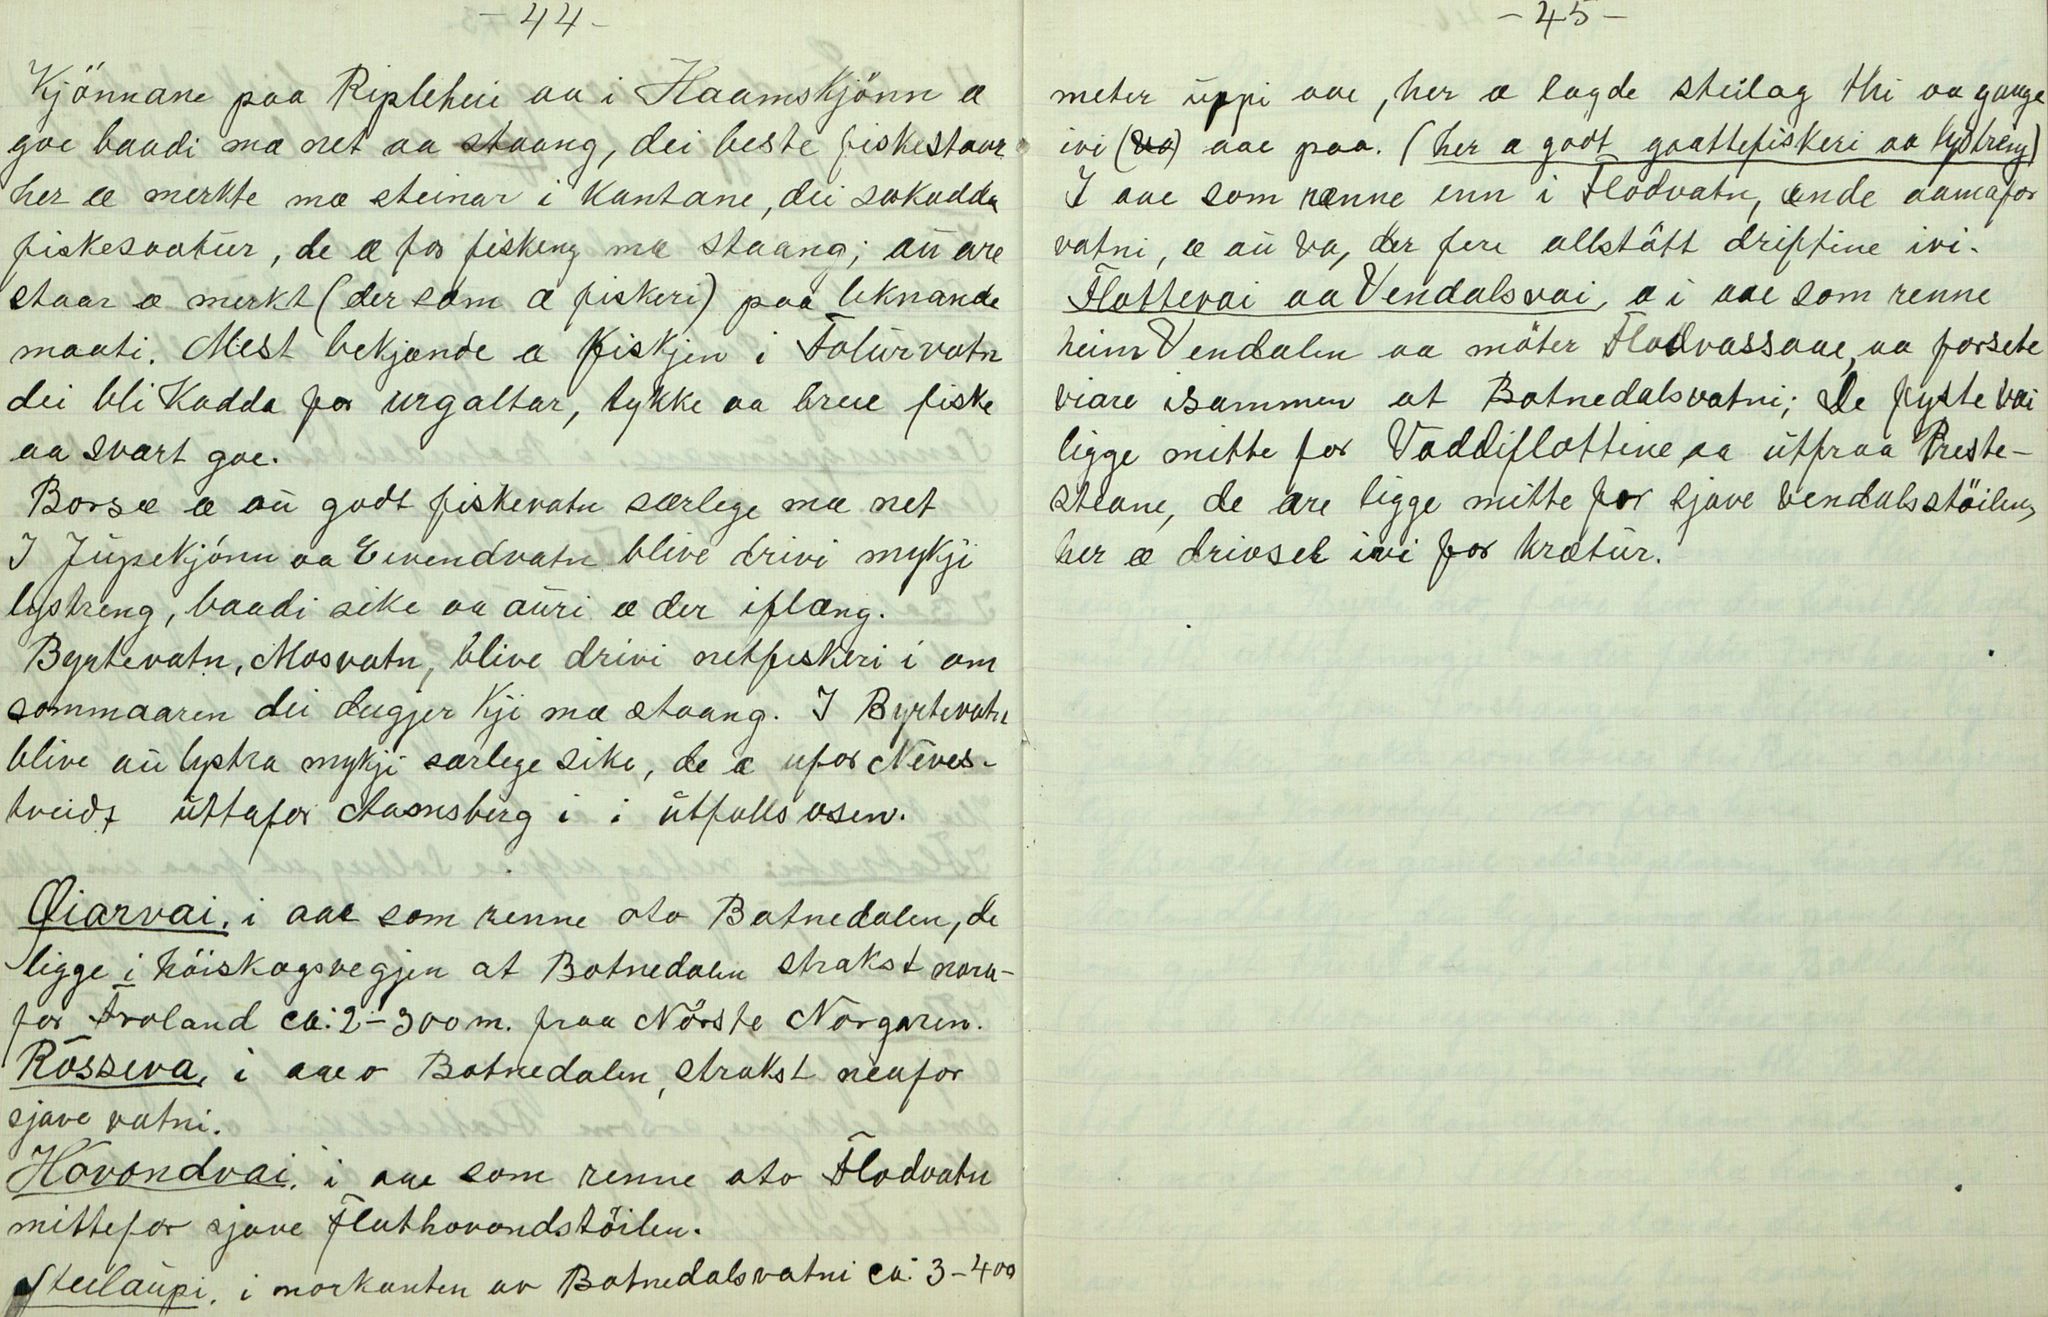 - 44 -
Kjönnane paa Ripleheii aa i Haamskjönn æ
goe baadi mæ net aa staang, dei beste fiskestaar
her æ merkte mæ steinar i kantane, dei såkadda
fiskesaatür, de æ for fisking mæ staang; aü are
staar æ merkt (der som æ fiskeri) paa liknande
maati. Mest bekjænde æ fiskjen i Folürvatn
dei bli kadda for urgaltar, tykke aa breie fiske
aa svært goe.
Borsæ æ aü godt fiskevatn særlege mæ net
I Jüpekjönn aa Eivendvatn blive drivi mykji
lystreng, baadi sike aa aüri æ der iflæng.
Byrtevatn, Mosvatn, blive drivi netfiskeri i om
sommaaren dei dugjer kji mæ staang. I Byrtevatn
blive aü lystra mykji særlege sike, de æ ufor Neves-
tveidt üttafor Aamsberg i i ütfallsosen.
Öiarvai, i aae som renne oto Botnedalen, de
ligge i höiskogsvegjen at Botnedalen strakst nora-
for Froland ca: 2-300 m. fraa Nörste Norgaren.
Rosseva, i aae o Botnedalen, strakst neafor
sjave vatni.
Hovondvai, i aae som renne oto Flodvatn
mittefor sjave Flathovondstöilen.
Steilaüpi, i norkanten av Botnedalsvatni ca: 3-400
- 45 -
meter üppi aae, her æ lagde steilag thi aa gange
ivi (va) aae paa. (her æ godt gaattefiskeri aa lystreng)
I aae som renne enn i Flodvatn, ende aamafor
vatni, æ aü va, der fere allstött driftine ivi.
Flottevai aa Vendalsvai, æ i aae som renne
heim Vendalen aa möter Flodvassaae, aa forsete
viare isammen at Botnedalsvatni; De fyste vai
ligge mitte for Vaddiflottine aa ütfraa Preste-
steane, de are ligge mitte for sjave Vendalsstöilen,
her æ drivsel ivi for krætür.